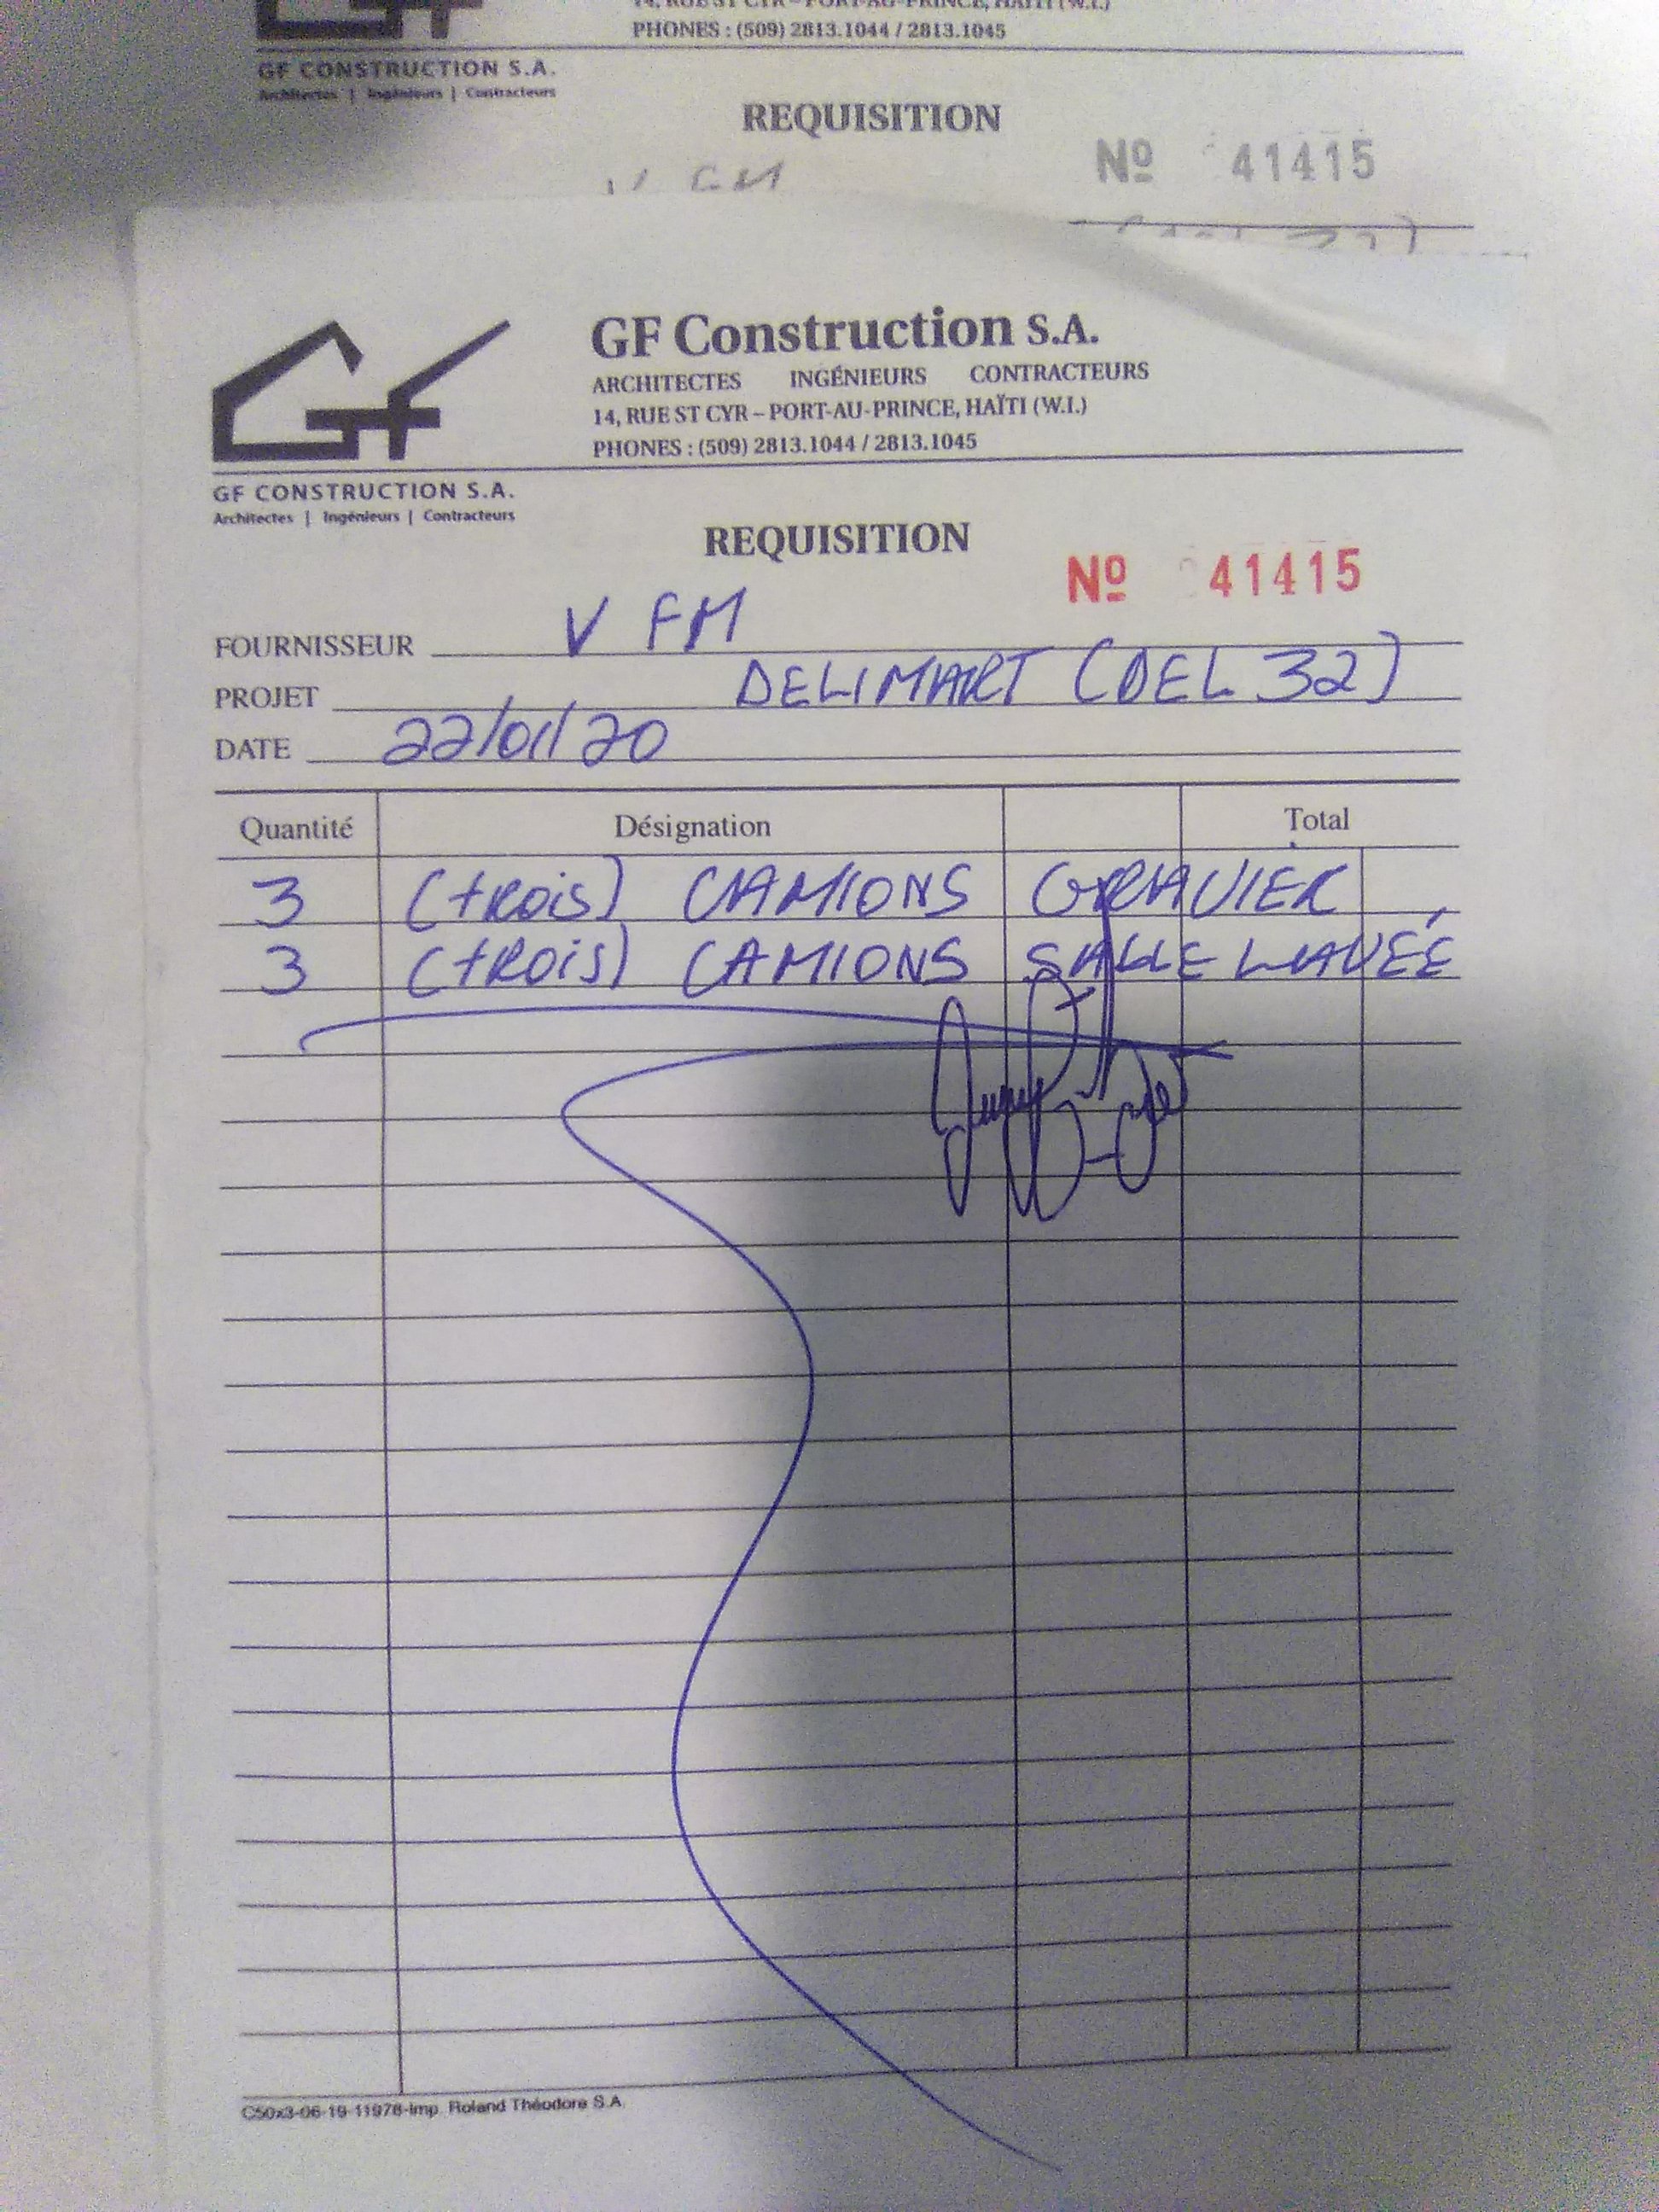 14, RUE ST CYR – PORT-AU-PRINCE, HAÏTI (W.I.)
PHONES : (509) 2813.1044 / 2813.1045
GF CONSTRUCTION S.A.
Architectes | Ingénieurs | Contracteurs
REQUISITION
Nº 41415
GF Construction S.A.
ARCHITECTES INGÉNIEURS CONTRACTEURS
14, RUE ST CYR – PORT-AU-PRINCE, HAÏTI (W.I.)
PHONES : (509) 2813.1044 / 2813.1045
GF CONSTRUCTION S.A.
Architectes | Ingénieurs | Contracteurs
REQUISITION
Nº 41415
FOURNISSEUR V FM
PROJET DELIMART (DEL 32)
DATE 22/01/20
Quantité Désignation Total
3 (trois) CAMIONS GRAVIER
3 (trois) CAMIONS SABLE LAVÉE
C50x3-06-19-11978-Imp. Roland Théodore S.A.